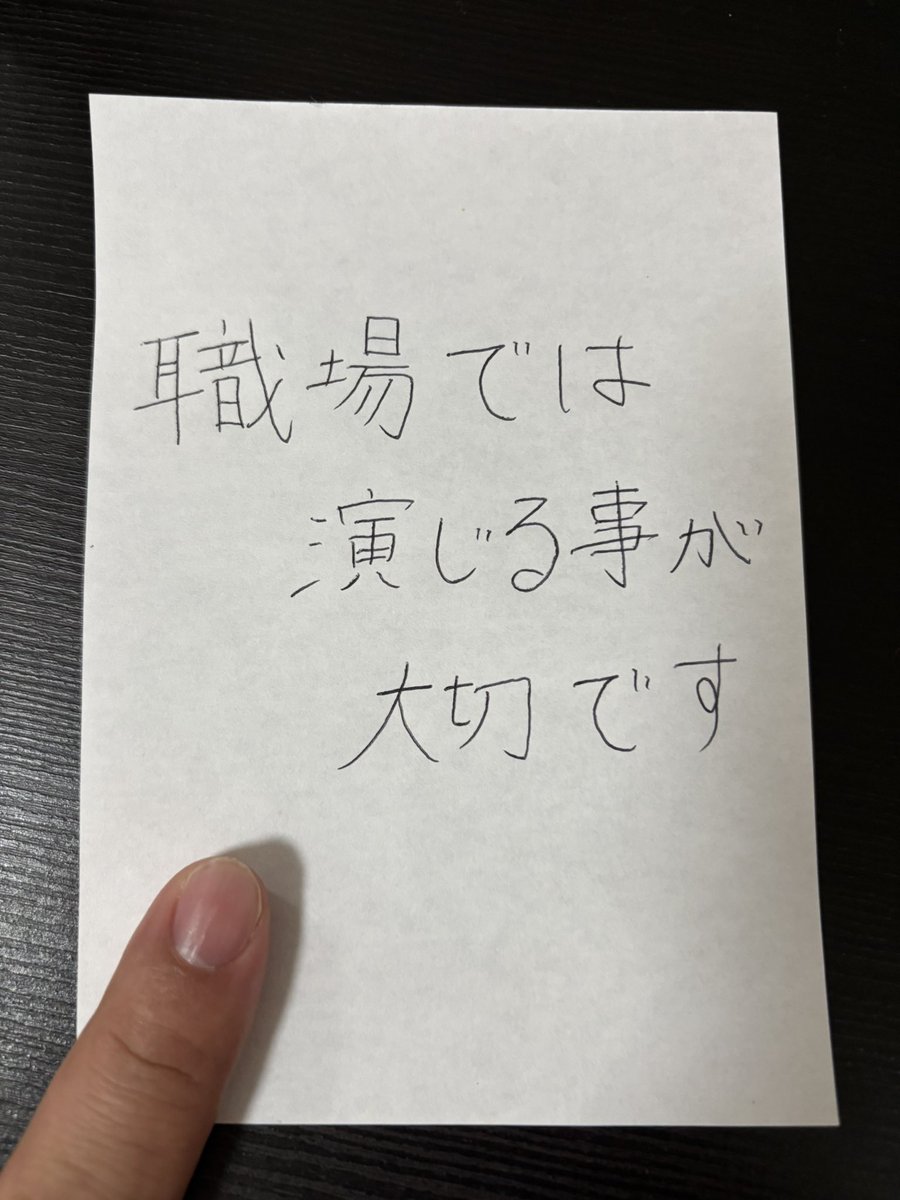 職場では
演じる事が
大切です